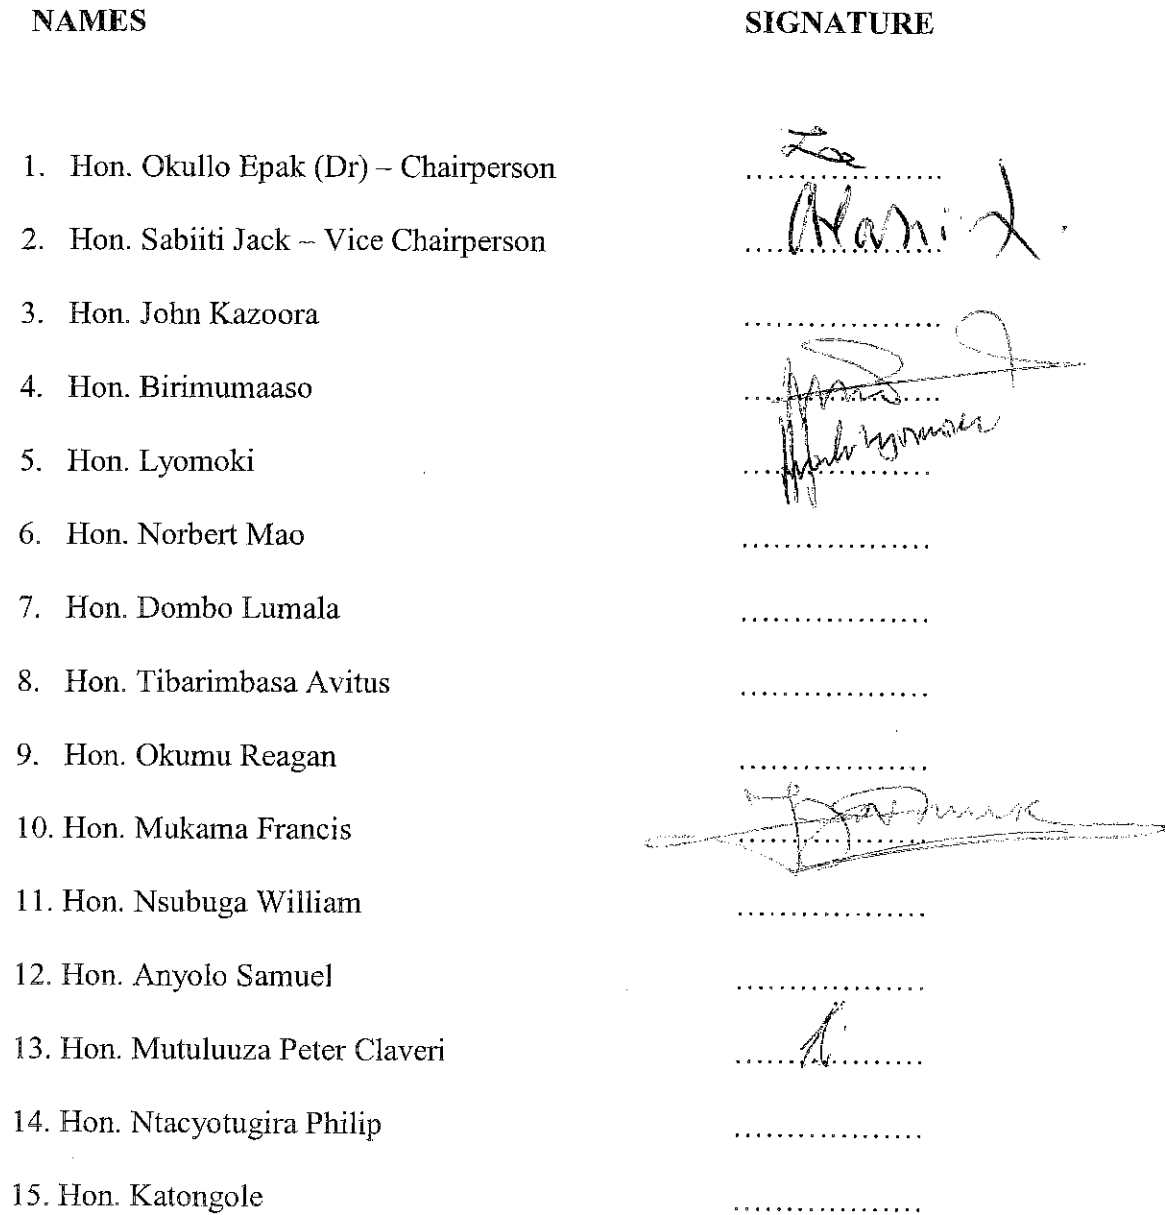 NAMES SIGNATURE
1. Hon. Okullo Epak (Dr) – Chairperson ..................
2. Hon. Sabiiti Jack – Vice Chairperson ..................
3. Hon. John Kazoora ..................
4. Hon. Birimumaaso ..................
5. Hon. Lyomoki ..................
6. Hon. Norbert Mao ..................
7. Hon. Dombo Lumala ..................
8. Hon. Tibarimbasa Avitus ..................
9. Hon. Okumu Reagan ..................
10. Hon. Mukama Francis ..................
11. Hon. Nsubuga William ..................
12. Hon. Anyolo Samuel ..................
13. Hon. Mutuluuza Peter Claveri ..................
14. Hon. Ntacyotugira Philip ..................
15. Hon. Katongole ..................